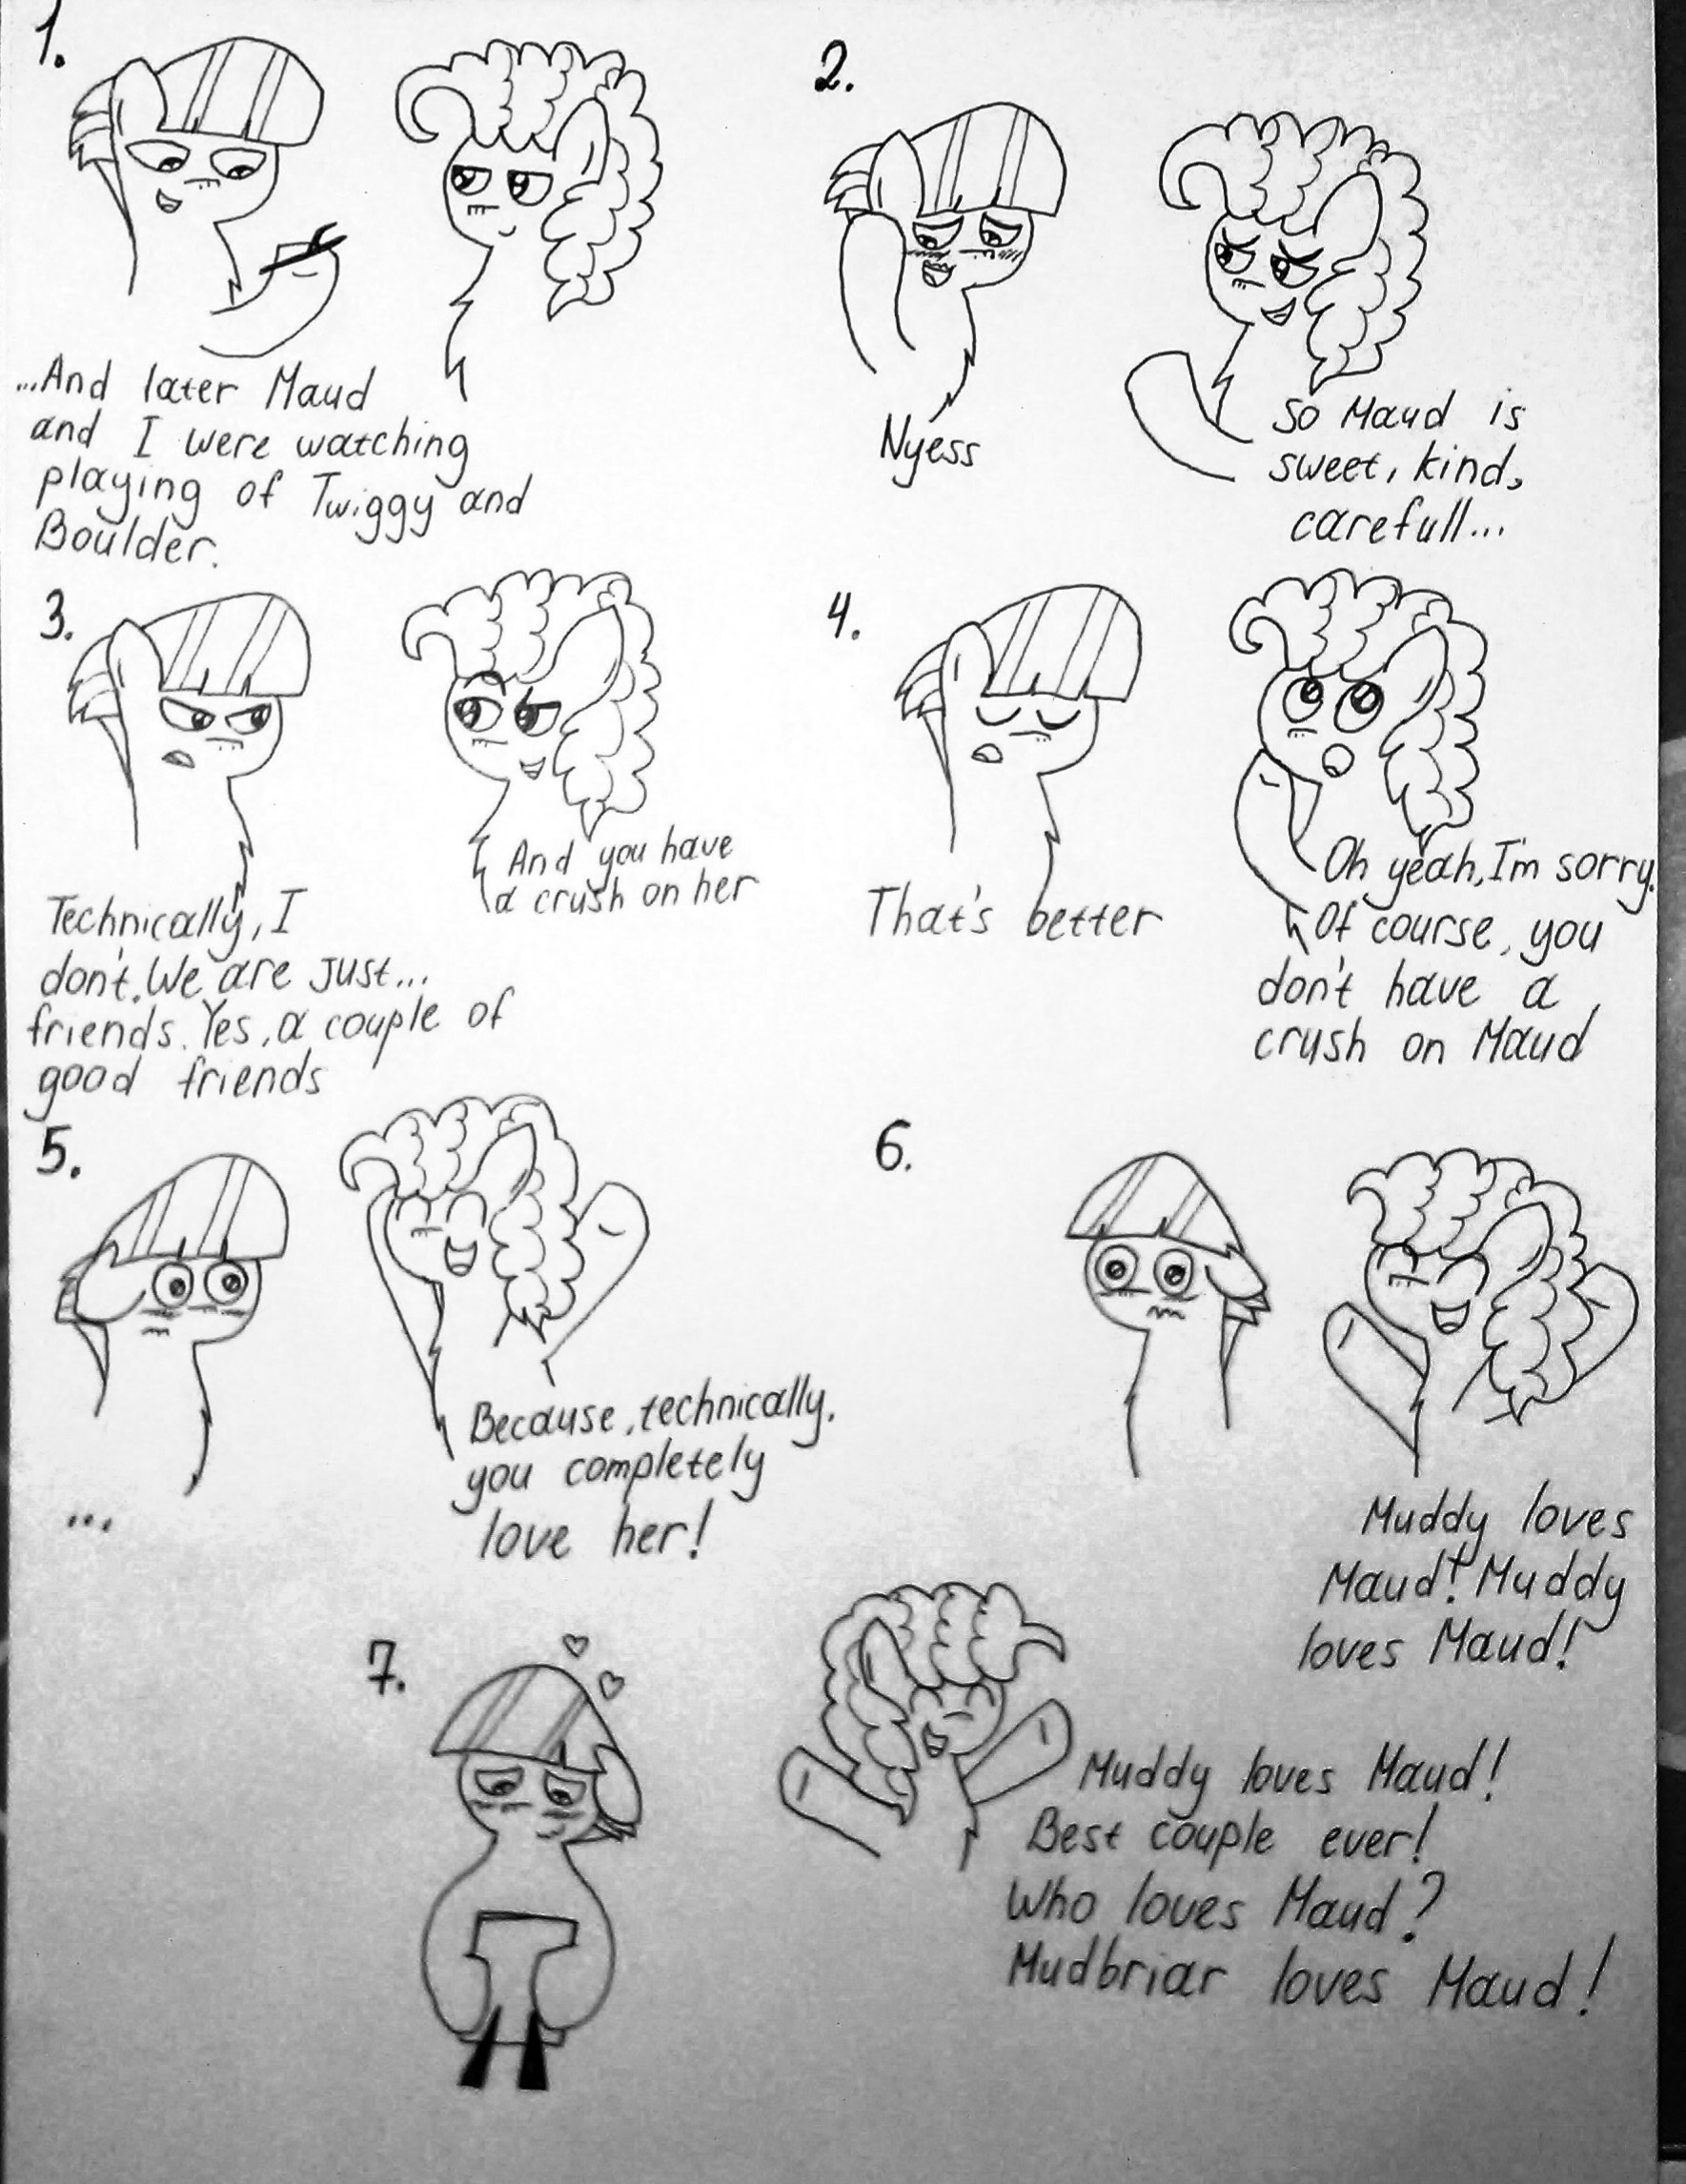 1.
...And later Maud
and I were watching
playing of Twiggy and
Boulder.
2.
Nyess
So Maud is
sweet, kind,
carefull...
3.
Technically, I
don't. We are just...
friends. Yes, a couple of
good friends
And you have
a crush on her
4.
That's better
Oh yeah, I'm sorry.
Of course, you
don't have a
crush on Maud
5.
...
Because, technically,
you completely
love her!
6.
Muddy loves
Maud! Muddy
loves Maud!
7.
Muddy loves Maud!
Best couple ever!
Who loves Maud?
Mudbriar loves Maud!